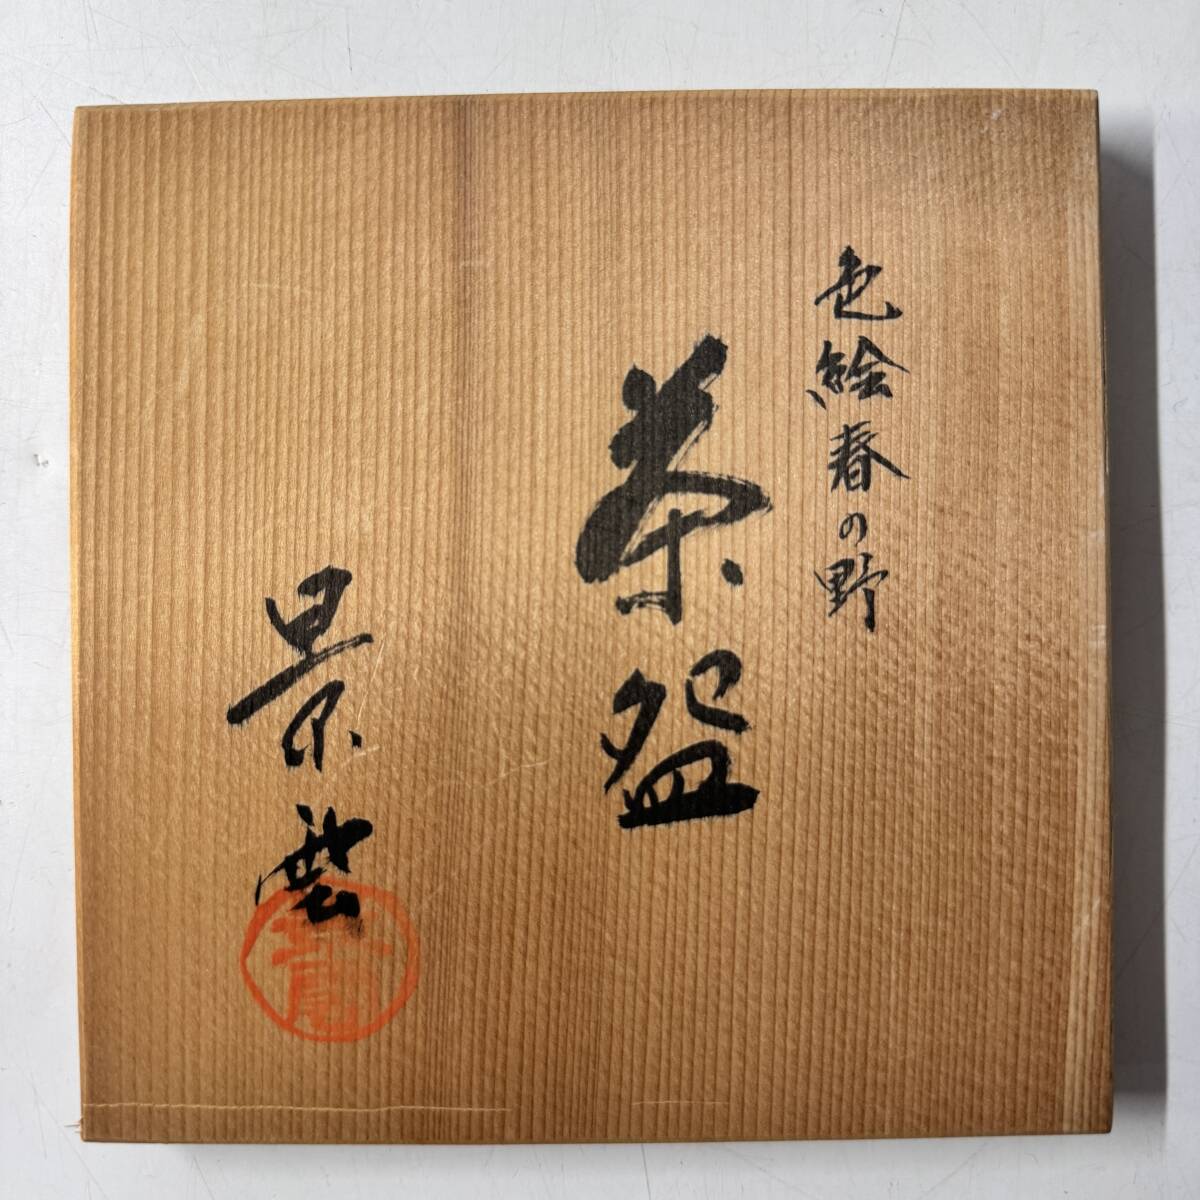 色絵春の野
茶盌
景雲